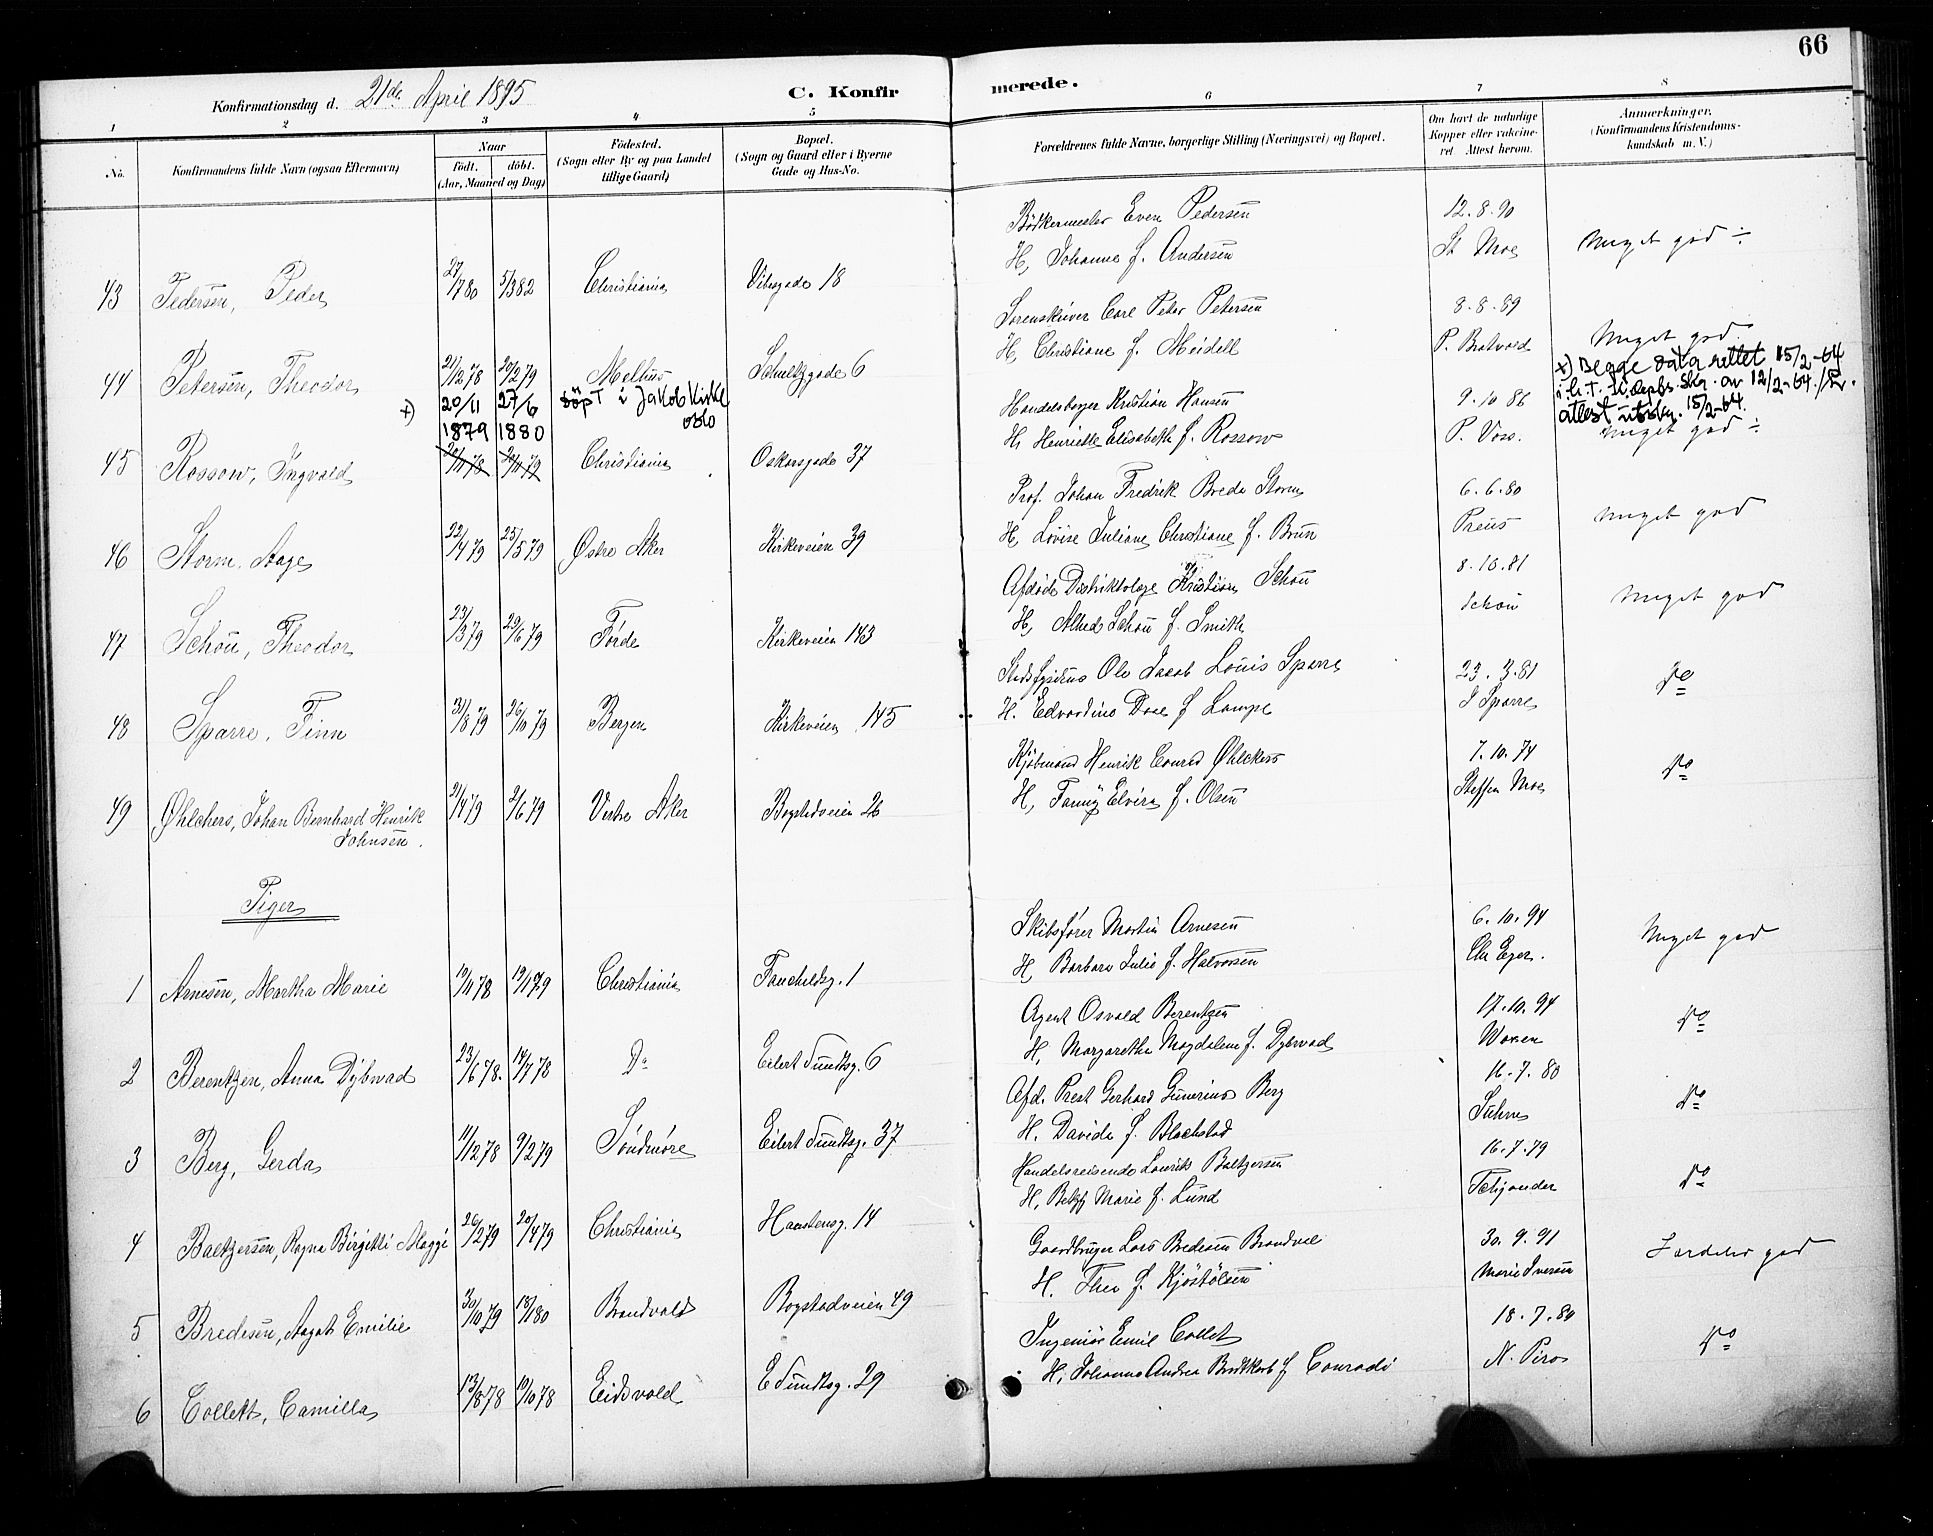 66
Konfirmationsdag d. 21de April 1895
C. Konfirmerede.
1 2 3 4 5 6 7 8
No.
Konfirmandens fulde Navn (ogsaa Efternavn)
Naar
født. døbt.
(Aar, Maaned og Dag)
Fødested.
(Sogn eller By og paa Landet
tillige Gaard)
Bopæl.
(Sogn og Gaard eller i Byerne
Gade og Hus-No.
Forældrenes fulde Navne, borgerlige Stilling (Næringsvei) og Bopæl.
Om havt de naturlige
Kopper eller vaccine-
ret Attest herom.
Anmærkninger.
(Konfirmandens Kristendoms-
kundskab m. V.)
Bødkermester Even Pedersen 12.8.90
43 Pedersen, Peder 27/1 80 5/3 82 Christiania Vibesgade 18 H, Johanne f. Andersen St Moe Meget god ÷
Sorenskriver Carl Peter Petersen 8.8.89
44 Petersen, Theodor 21/12 78 20/2 79 Melhus Schultzgade 6 H, Christiane f. Meidell P. Bratvold Meget god
x) 20/11 1879 27/6 1880 döpt i Jakob Kirke Oslo
x) Begge data rettet 15/2-64
i h.t. av 12/2-64.
attest utskr. 15/2-64.
Handelsborger Kristian Hansen 9.10 86
45 Rossow, Ingvald 20/11 78 20/11 79 Christiania Oskarsgade 37 H, Henriette Elisabeth f. Rossow P. Voss. Meget god ÷
Prof. Johan Fredrik Breda Storm 6.6.80
46 Storm, Aage 22/4 79 25/5 79 Østre Aker Kirkeveien 39 H, Lovise Juliane Christiane f. Brun Preus Meget god
Afdøde Distriktslæge Kristian Schou 8.10.81
47 Schou, Theodor 23/3 79 29/6 79 Førde Kirkeveien 143 H, Alhed Schou f. Smith Schou Meget god
Stadsfysikus Ole Jacob Louis Sparre 23.3.81
48 Sparre, Finn 31/8 79 26/10 79 Bergen Kirkeveien 145 H. Edvardine Dose f Lampe S Sparre Do
Kjøbmand Henrik Conrad Øhlckers 7.10.74
49 Øhlchers, Johan Bernhard Henrik 21/4 79 2/6 79 Vestre Aker Bogstadveien 26 H, Fanny Elvira f. Olsen Steffen Moe Do
Johnsen.
Piger
Skibsfører Martin Arnesen 6.10.94
1 Arnesen, Martha Marie 10/11 78 19/1 79 Christiania Fauchaldsg. 1 H, Barbara Julie f. Halvorsen Chr Eger. Meget god
Agent Osvald Berentzen 17.10.94
2 Berentzen, Anna Dybwad 23/6 78. 14/7 78 Do Eilert Sundtsg. 6 H, Margarethe Magdalene f. Dybwad Do
Afd. Prest Gerhard Gunerius Berg 16.7.80
3 Berg, Gerda 11/12 78 9/2 79 Söndmöre Eilert Sundtsg. 37 H. Davida f. Blachstad Do
Handelsreisende Lauritz Baltzersen 16.7.79
4 Baltzersen, Ragna Birgitte Maggi 26/2 79 20/4 79 Christiania Hanstensg. 14 H, Betzy Marie f. Lund Do
Gaardbruger Lars Bredesen Brandval 30.9.91
5 Bredesen, Aagot Emilie 30/10 79 18/1 80 Brandvold Bogstadveien 49 H. Thea f. Kjöstölsen Marie Iversen Særdeles god
Ingeniør Emil Collett 18.7.80
6 Collett, Camilla 13/8 78 10/10 78 Eidsvold E Sundtsg. 29 H, Johanne Andrea f Conradi N. Piro Do